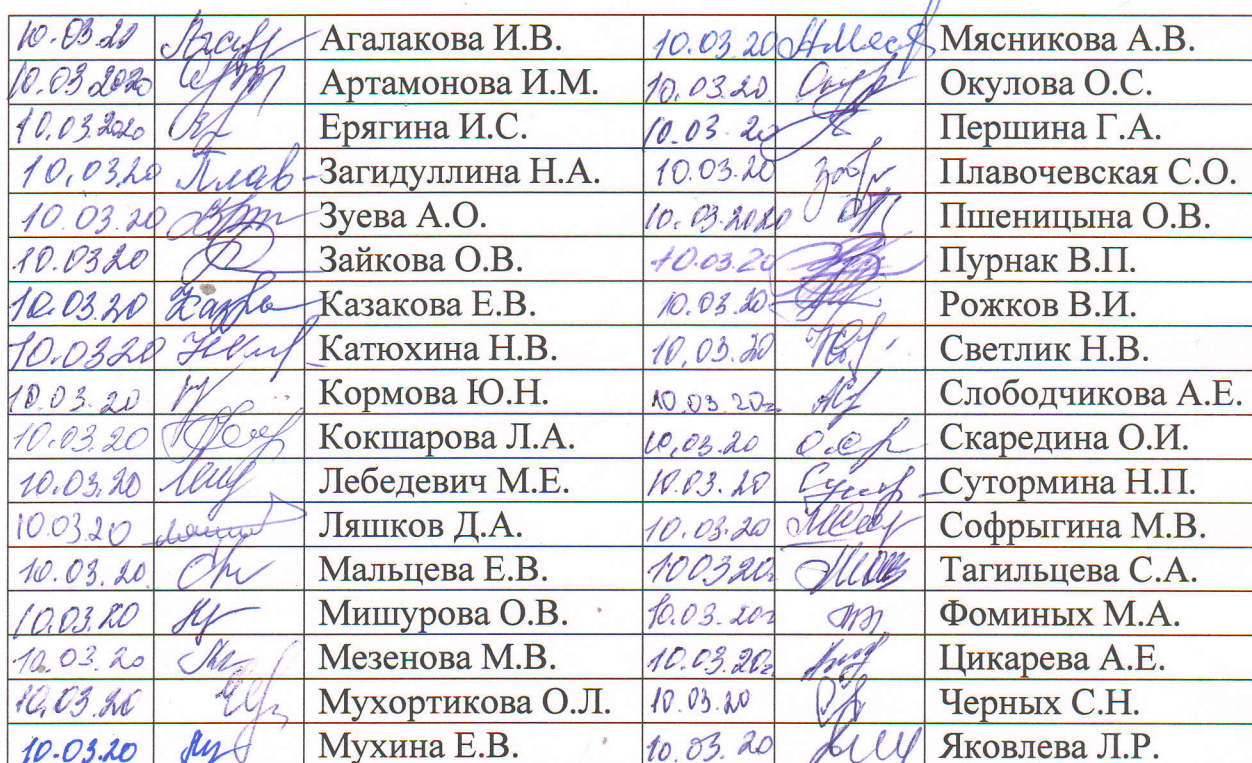 10.03.20 Агалакова И.В. 10.03.20 Мясникова А.В.
10.03.2020 Артамонова И.М. 10.03.20 Окулова О.С.
10.03.2020 Ерягина И.С. 10.03.20 Першина Г.А.
10.03.20 Плав Загидуллина Н.А. 10.03.20 Плавочевская С.О.
10.03.20 Зуева А.О. 10.03.2020 Пшеницына О.В.
10.03.20 Зайкова О.В. 10.03.20 Пурнак В.П.
10.03.20 Казакова Е.В. 10.03.20 Рожков В.И.
10.03.20 Катюхина Н.В. 10.03.20 Светлик Н.В.
10.03.20 Кормова Ю.Н. 10.03.20г Слободчикова А.Е.
10.03.20 Кокшарова Л.А. 10.03.20 Скаредина О.И.
10.03.20 Лебедевич М.Е. 10.03.20 Сутормина Н.П.
10.03.20 Ляшков Д.А. 10.03.20 Софрыгина М.В.
10.03.20 Мальцева Е.В. 10.03.20г Тагильцева С.А.
10.03.20 Мишурова О.В. 10.03.20г Фоминых М.А.
10.03.20 Мезенова М.В. 10.03.20г Цикарева А.Е.
10.03.20 Мухортикова О.Л. 10.03.20 Черных С.Н.
10.03.20 Мухина Е.В. 10.03.20 Яковлева Л.Р.